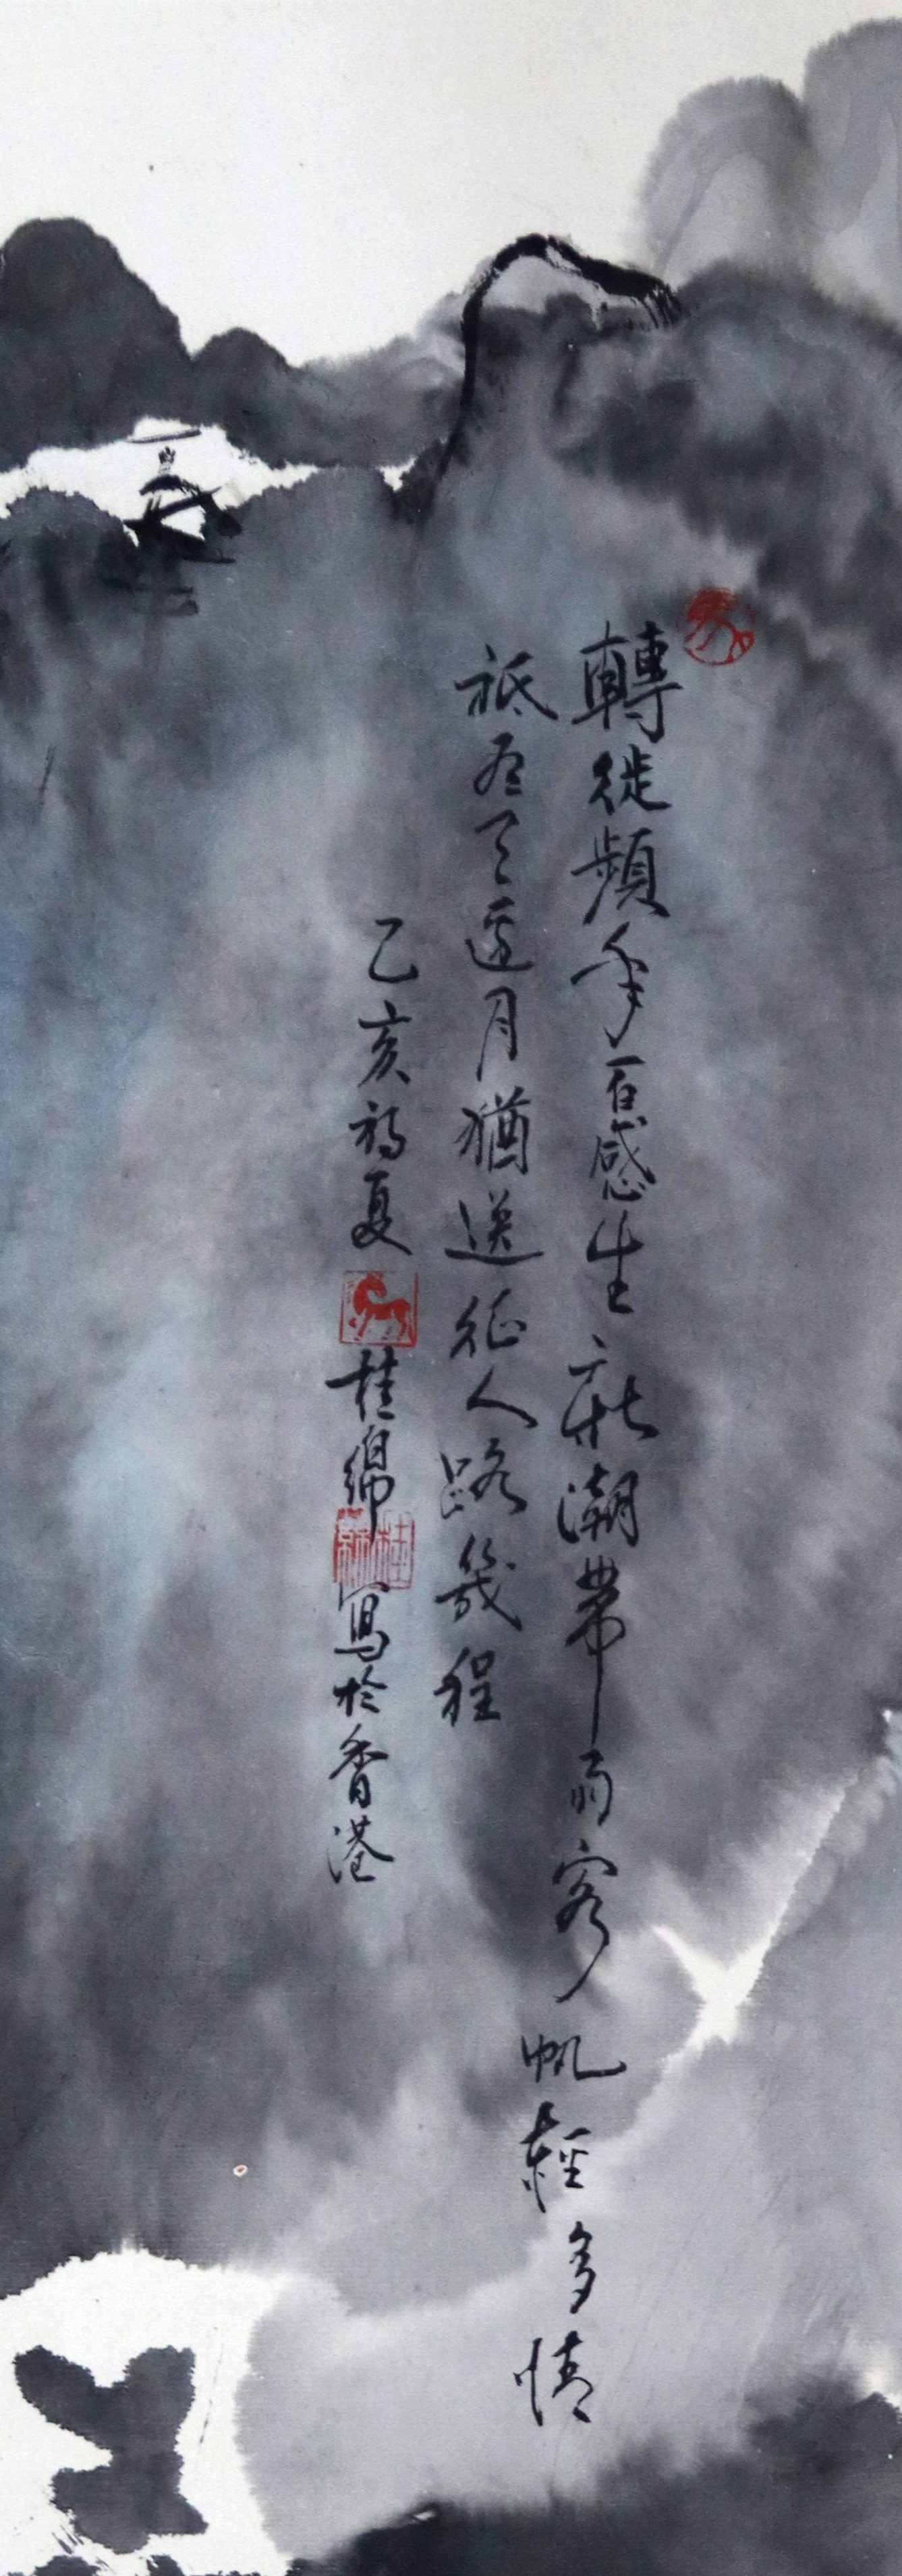 轉徙頻年百感生潮帶雨客帆輕多情
祗有天邊月猶送征人路幾程
乙亥初夏桂綿寫於香港